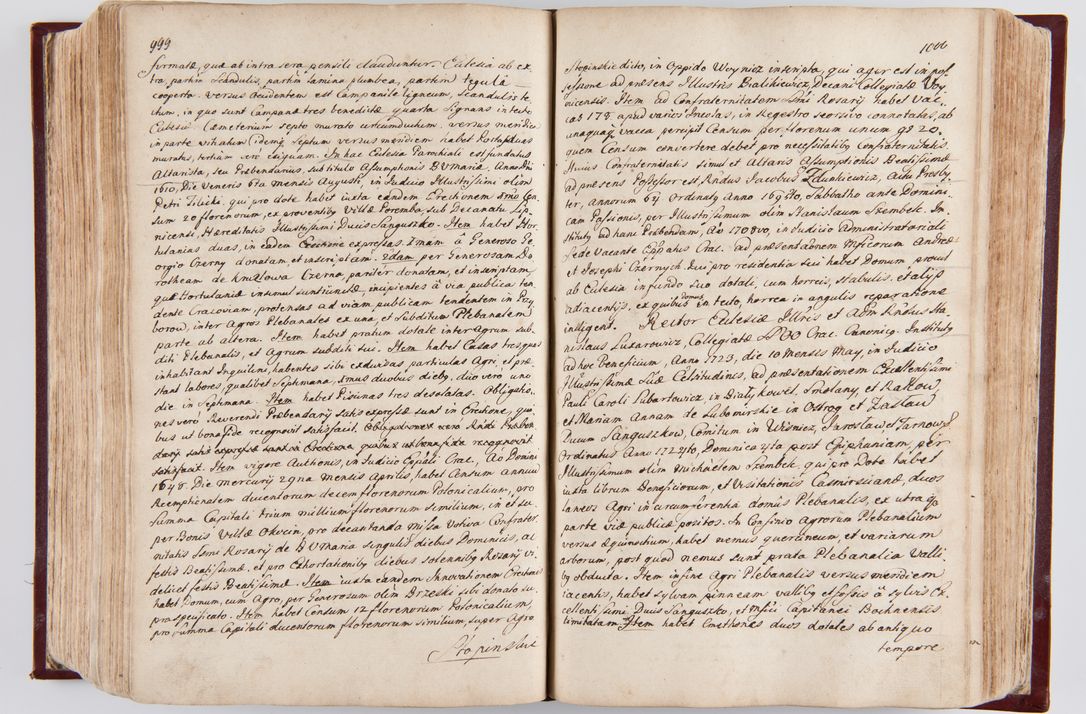 999
firmatæ, quæ ab intra sera pensili clauduntur. Ecclesia ab ex,
tra, partim scandulis, partim lamina plumbea, partim tegulâ
cooperta. versus Accidentem est Campanile ligneum, scandulis te,
ctum, in quo sunt Campanæ tres benedictæ quarta signans in tecto
Ecclesiæ. Cæmeterium septo murato circumductum, versus meridiem
in parte vitiatum (idemq; septum versus meridiem habet
muratus, tertium seri exiguam. In hac Ecclesia Parochiali est fundatus
Altarista, seu Præbendarius, sub titulo Assumptionis B V Mariæ, Anno Dni
1610, Die Veneris 6ta Mensis Augusti, in Judicio Illustrissimi olim
Petri Tilicki, qui pro dote habet iuxta eandem Erectionem
sum 20 florenorum, ex proventibq Villæ Poremba, sub Decanatu Lip,
nicensi, Hæreditatis Illustrissimi Ducis Sanguszko. Item habet Hor,
tulanias duas, in eadem Erectione expressas, 1mam â Generoso Ge,
orgio Czerny donatam et inscriptam. 2dam per Generosam Do,
rotheam de Kruzlowa Czerna, pariter donatam, et inscriptam,
quæ Hortulaniæ insimul sunt unitæ, incipientes â via publica ten,
dente Cracoviam, protensæ ad viam publicam tendentem in Przy,
borow, inter Agros Plebanales ex una, et Subditum Plebanalem
parte ab altera. Item habet pratum dotale inter Agrum sub,
diti Plebanalis, et Agrum subditi sui. Item habet Casas tres quas
inhabitant Inquilini, habentes sibi exdivisas particulas Agri, et præ,
stant labores qualibet Septimana, 1mus duobus diebq, duo verò uno
die in Septimana. Item habet Piscinas tres desolatas. Obligatio,
nes verò Reverendi Præbendarij satis expressæ sunt in Erectione, qui,
bus ut bona fide recognovit satisfacit.
satisfacit. Item vigore Authonis, in Judicio Eppali Crac. Ao Domini
1648. Die Mercurij 29na Mensis Aprilis, habet Censum annuum
Reemptionalem ducentorum decem florenorum Polonicalium, pro
summa Capitali trium millium florenorum similium, in et su,
per Bonis Villæ Okocin, pro decantanda Missa Votiva Confrater,
nitatis Ssmi Rosarij de B V Maria singulis diebus Dominicis, ac
festis Beatissimæ, et pro Exhortationibq diebus solennibq Rosarij vi,
delicet festis Beatissimæ. Item iuxta eandem Innovationem Erectionis
habet Domum, cum Agro, per Generosum olim Drzeski sibi donato su,
pra specificato. Item habet Censum 12 florenorum Polonicalium,
pro summa Capitali ducentorum florenorum similium, super Agro
Stopinskie
1000
Stepinskie dicto, in Oppido Woynicz inscripta, qui ager est in pos,
sessione ad præsens Illustris Bialikiewicz, Decani Collegiatæ Woy,
nicensis. Item ad Confraternitatem Ssmi Rosarij habet Vac,
cas 178 apud varios Incolas, in Regestro seorsivo connotatas, ab
unaquaq vacca percipit Censum per florenum unum gs 20.
quem Censum convertere debet pro necessitatibq Confraternitatis.
Huius Confraternitatis simul et Altaris Assumptionis Beatissimæ
ad præsens Possessor est Rndus Jacobus Zdunkiewicz, Actu Presby,
ter, Annorum 64 Ordinatq Anno 1696to, Sabbatho ante Domini,
cam Passionis, per Illustrissimum olim Stanislaum Szembek. In,
stitutq ad hanc Præbendam, Ao 1708vo, in Judicio Administratoriali
Sede Vacante Eppatus Crac. ad præsentaonem Mfcorum Andreæ
et Josephi Czernych. Qui pro residentia sui habet Domum procul
ab Ecclesia in fundo suo dotali, cum horreis, stabulis, et alijs
adiacentijs, ex quibus domus in tecto, horrea in angulis reparatione
indigent. Rector Ecclesiæ Illris et Adm Rndus Sta,
nislaus Luxarowicz, Collegiatæ Crac. Canonicq. Institutq
ad hoc Beneficium, Anno 1723, die 10 Mensis May, in Judicio
Illustrissimæ Suæ Celsitudinis, ad præsentationem Excellentissimi
Pauli Caroli Lubartowicz, in Bialykowel, Smolany, et Rakow
et Mariam Annam de Lubomirskie in Ostrog et Zaslaw
Ducum Sanguszkow, Comitum in Wisnicz, Jaroslaw et Tarnow,
Ordinatus Anno 1724to, Dominica 4ta post Epiphaniam, per
Illustrissimum olim Michaelem Szembek, qui pro Dote habet
iuxta librum Beneficiorum, et Visitationis Casimirsianæ, duos
laneos Agri in circumferentia domûs Plebanalis, ex utraq
parte viæ publicæ positos. In Confinio Agrorum Plebanalium
versus æquinoctium, habet nemus quercineum, et variarum
arborum, post quod nemus sunt prata Plebanalia valli
bq obducta. Item in fine Agri Plebanalis versus meridiem
iacentis, habet sylvam pinneam vallibq et fossis â sylvis Ex,
cellentissimi Ducis Sanguszko, et Mfici Capitanei Bochnensis
limitatam. Item habet Cmethones duos dotales ab antiquo
tempore